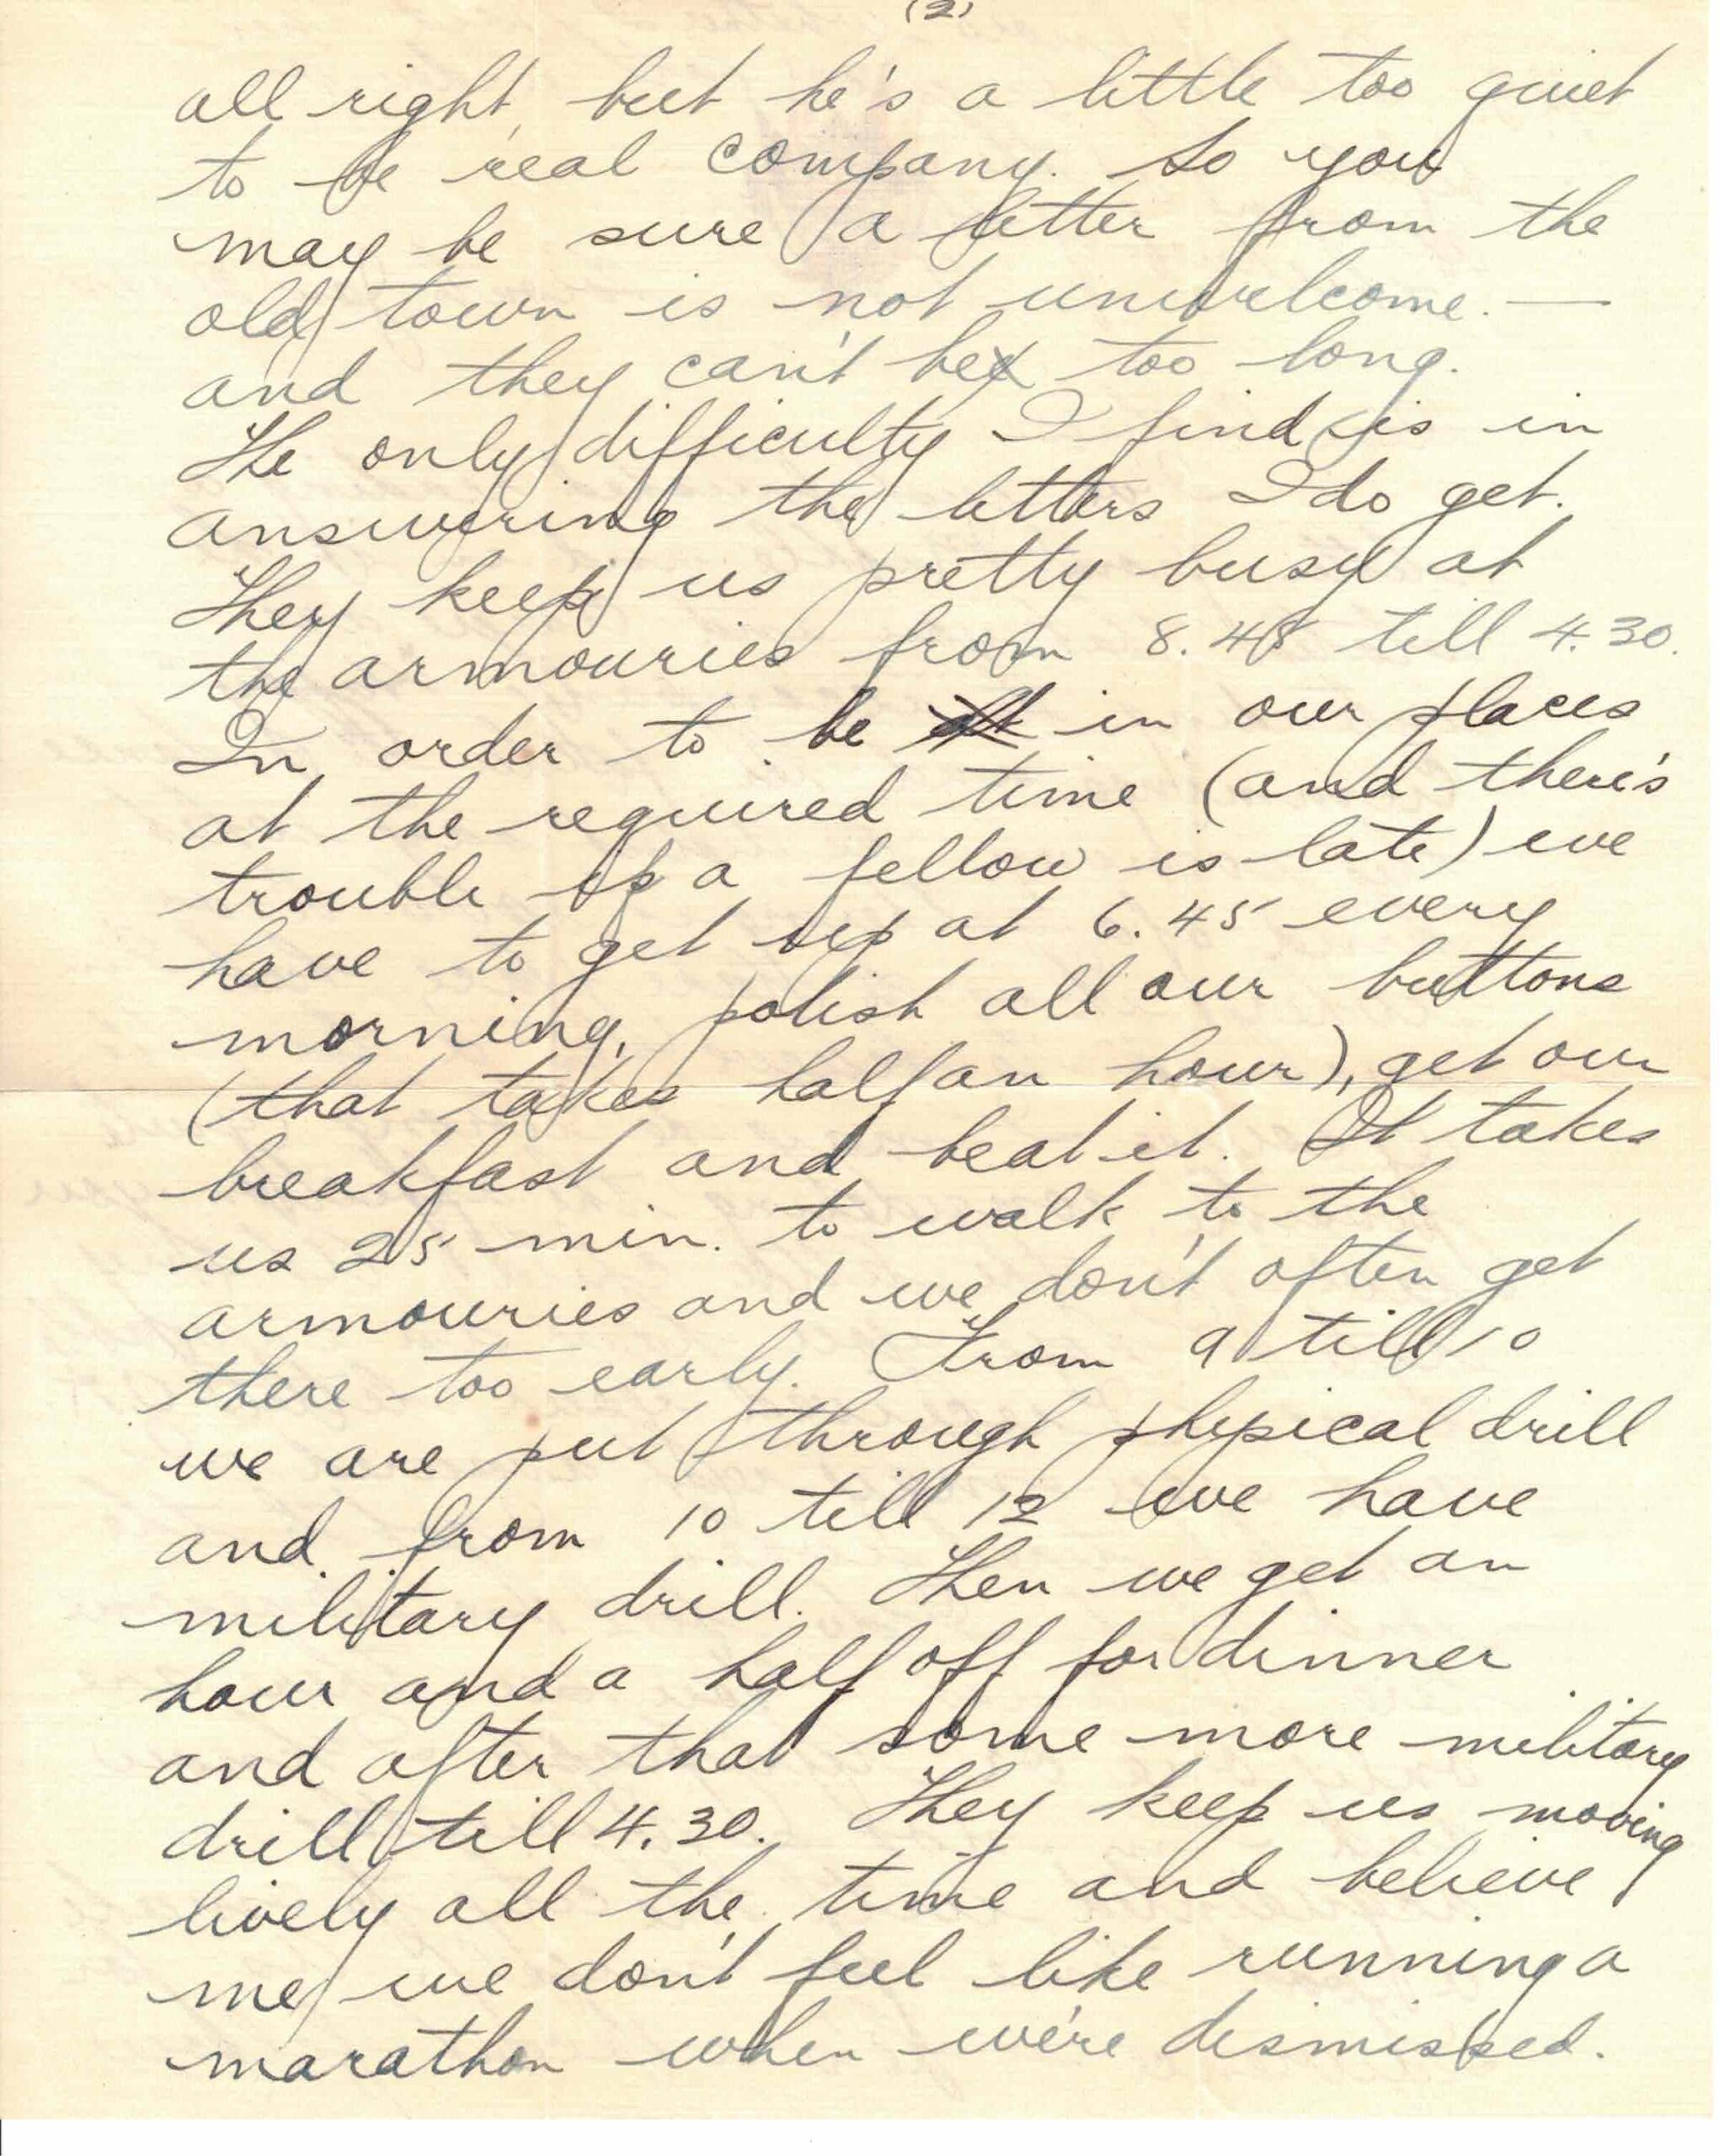 (2)
all right, but he's a little too quiet
to be real company. So you
may be sure a letter from the
old town is not unwelcome. —
and they can't be too long.
The only difficulty I find is in
answering the letters I do get.
They keep us pretty busy at
the armouries from 8.45 till 4.30.
In order to be in our places
at the required time (and there's
trouble if a fellow is late) we
have to get up at 6.45 every
morning, polish all our buttons
(that takes half an hour), get our
breakfast and beat it. It takes
us 25 min. to walk to the
armouries and we don't often get
there too early. From 9 till 10
we are put through physical drill
and from 10 till 12 we have
military drill. Then we get an
hour and a half off for dinner
and after that some more military
drill till 4.30. They keep us moving
lively all the time and believe
me we don't feel like running a
marathon when we're dismissed.